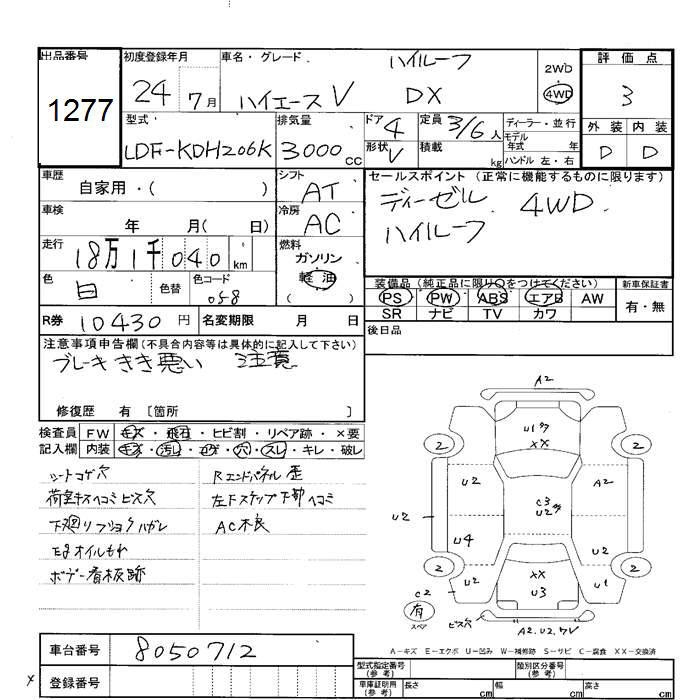 出品番号 初度登録年月 車名・グレード ハイルーフ 2WD 評価点
1277 24 7月 ハイエースV DX 4WD 3
型式 排気量 ドア 4 定員 3/6人 ディーラー・並行 外装 内装
LDF-KDH206K 3000CC 形状 V 積載 kg モデル年式 年 D D
ハンドル 左・右
車歴 シフト セールスポイント (正常に機能するものに限ります)
自家用・( ) AT ディーゼル 4WD
車検 年 月( 日) 冷房 AC ハイルーフ
走行 18万1千040km 燃料 ガソリン
軽油
色 白 色替 色コード 058 ( )
装備品 (純正品に限り○をつけてください) 新車保証書
PS PW ABS エアB AW 有・無
SR ナビ TV カワ
R券 10430円 名変期限 月 日 後日品
注意事項申告欄(不具合内容等は具体的に記入して下さい)
ブレーキきき悪い 注意
修復歴 有 〔箇所 〕
検査員 FW キズ・飛石・ヒビ割・リペア跡・×要
記入欄 内装 キズ・汚レ・コゲ・穴・スレ・キレ・破レ
シートコゲ穴 Rエンドパネル歪
荷室キズヘコミビス穴 左Fステップ下部ヘコミ
下廻リフショクハガレ AC不良
Egオイルもれ
ボデー看板跡
A2
U1 ﾜ
XX
2 2
U2 A2
C3
U2
U2
U4 U2
2 2
U2 XX U1
U3
C2
有
スペア
ビス穴 A2.U2.ワV
A－キズ E－エクボ U－凹み W－補修跡 S－サビ C－腐食 XX－交換済
車台番号 8050712
登録番号
型式指定番号(参考) 類別区分番号(参考)
車庫証明用(参考) 長さ cm 幅 cm 高さ cm